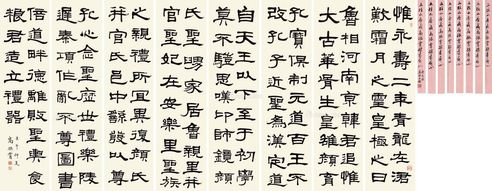 惟永壽二年青龍在涒
歎霜月之靈皇極之日
魯相河南京韓君追惟
大古華胥生皇雄顏育
孔寶俱制元道百王不
改孔子近聖為漢定道
自天王以下至于初學
莫不驥思嘆卬師鏡顏
氏聖舅家居魯親里并
官聖妃在安樂里聖族
之親禮所宜異復顏氏
并官氏邑中繇發以尊
孔心念聖歷世禮樂陵
遲秦項作亂不尊圖書
倍道畔德離敗聖輿食
糧君造立禮器